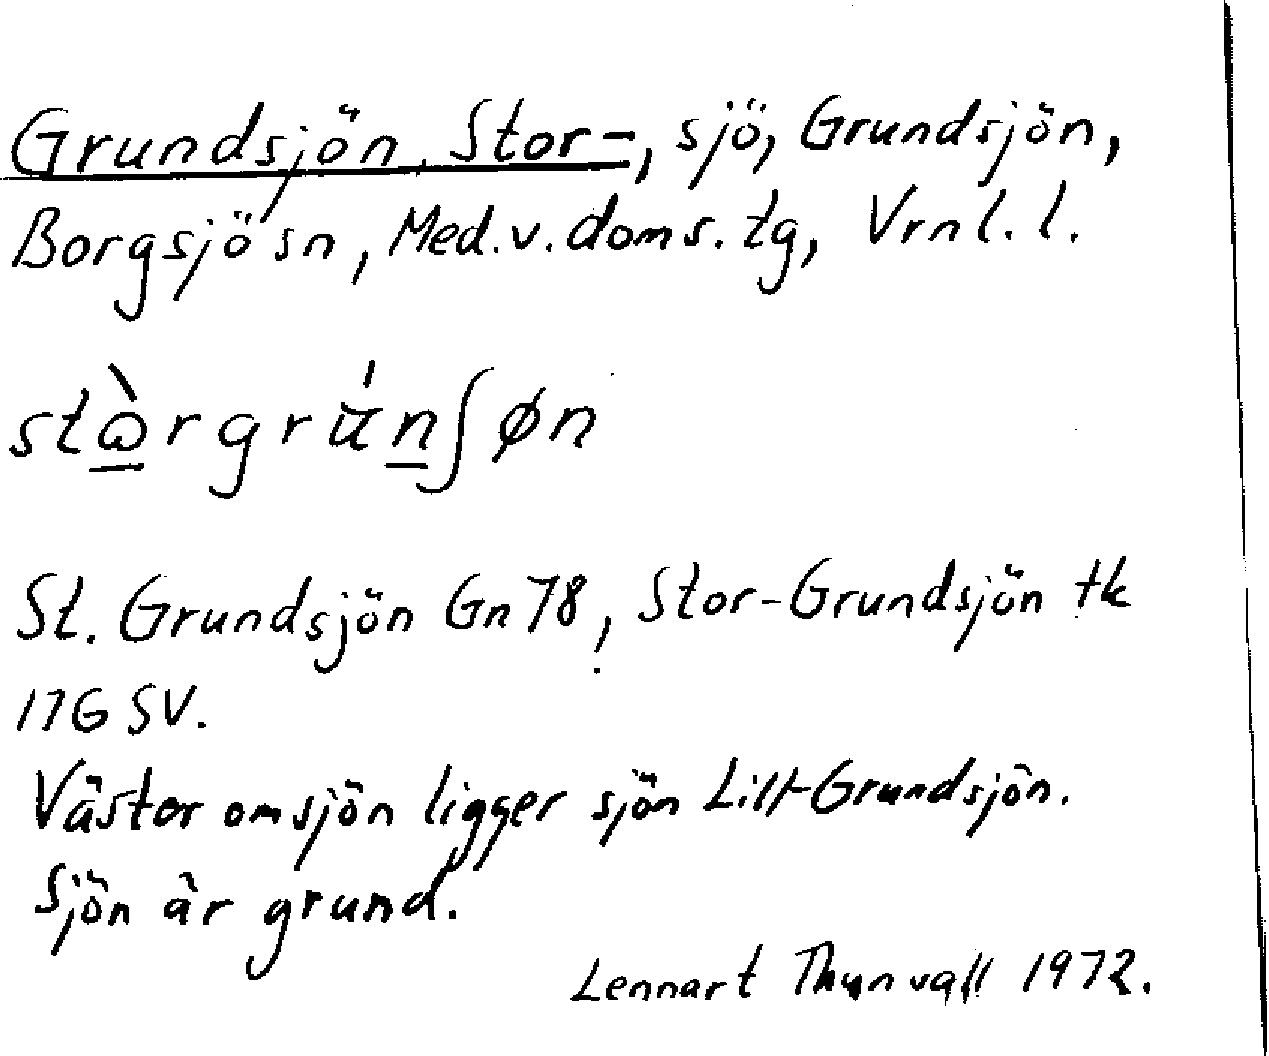 Grundsjön, Stor-, sjö, Grundsjön,
Borgsjö sn, Med. v. doms. tg, Vrnl. l.
St. Grundsjön Gn 78, Stor-Grundsjön tk
17G SV.
Väster om sjön ligger sjön Lill-Grundsjön.
Sjön är grund.
Lennart Thunvall 1972.